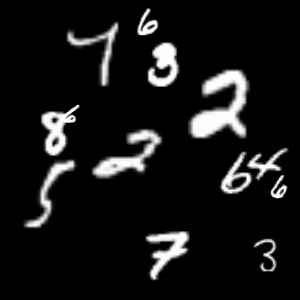 7 6 3
2
8 6
2
5
6 4 6
7 3